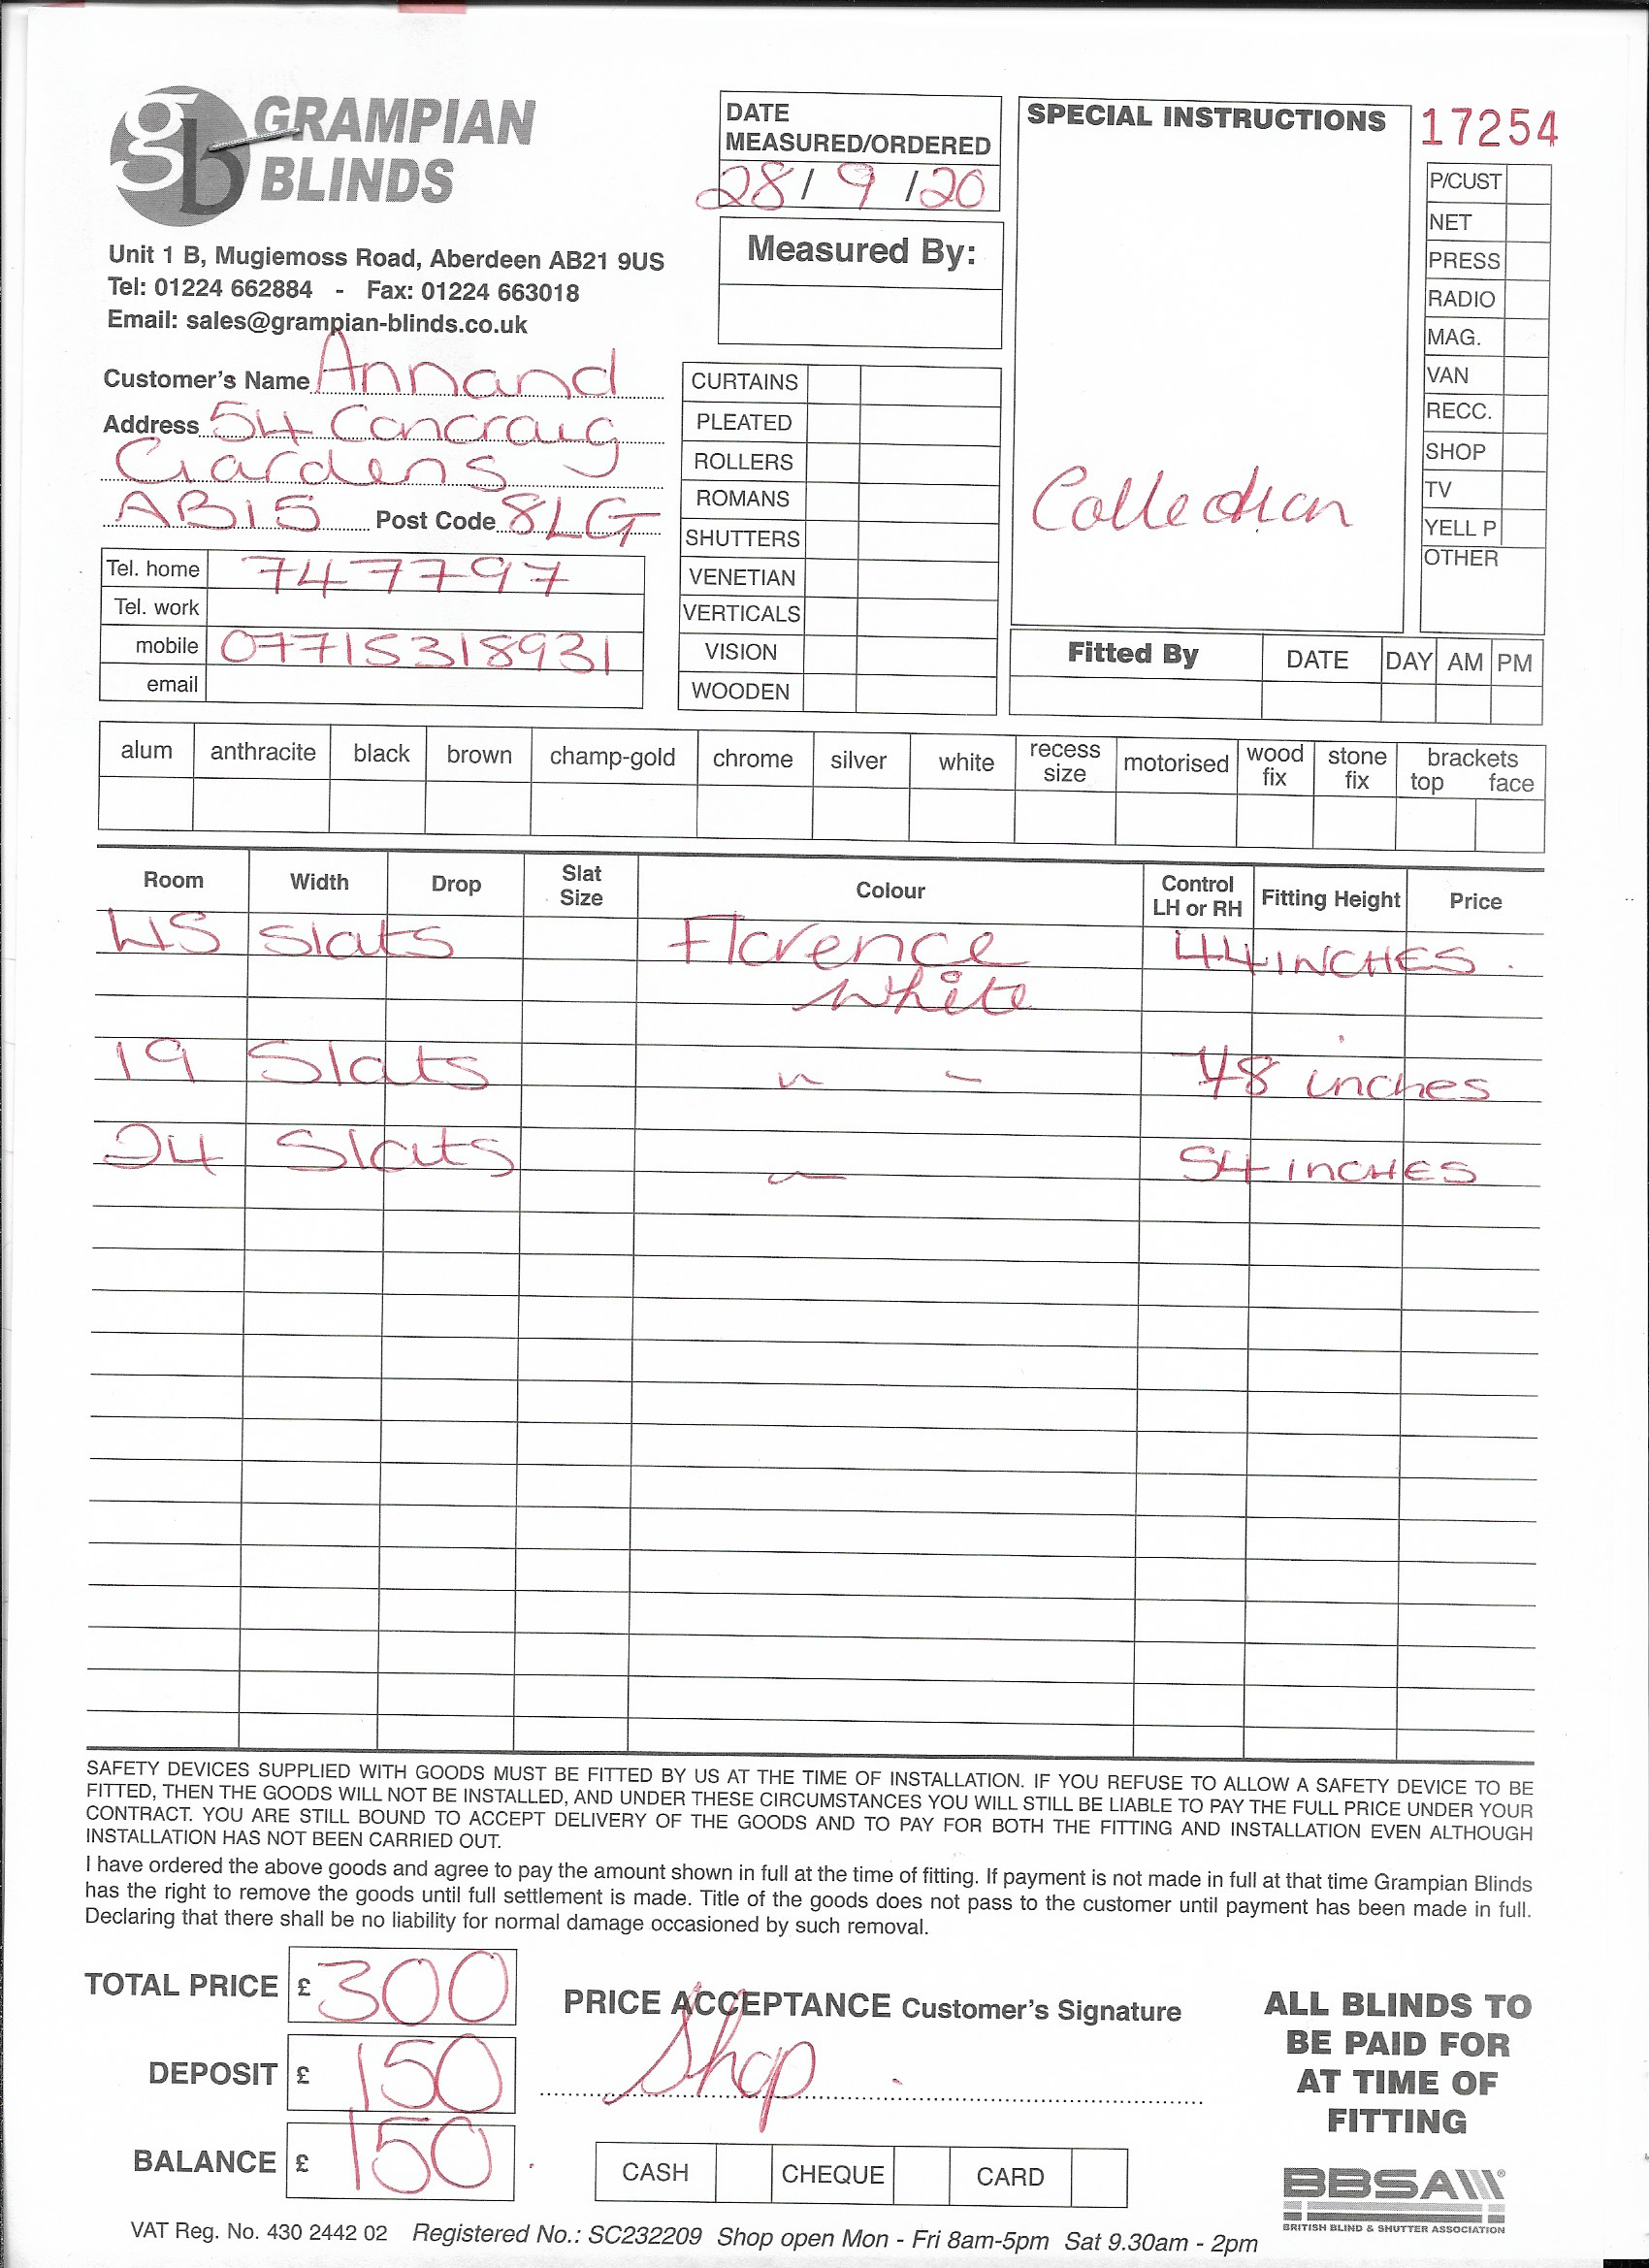 gb GRAMPIAN
BLINDS
Unit 1 B, Mugiemoss Road, Aberdeen AB21 9US
Tel: 01224 662884 - Fax: 01224 663018
Email: sales@grampian-blinds.co.uk
DATE
MEASURED/ORDERED
28/9/20
Measured By:
SPECIAL INSTRUCTIONS
Collection
17254
P/CUST
NET
PRESS
RADIO
MAG.
VAN
RECC.
SHOP
TV
YELL P
OTHER
Customer's Name Annand
Address 54 Concraig
Gardens
AB15 Post Code 8LG
Tel. home 747797
Tel. work
mobile 07715318931
email
CURTAINS
PLEATED
ROLLERS
ROMANS
SHUTTERS
VENETIAN
VERTICALS
VISION
WOODEN
Fitted By DATE DAY AM PM
alum anthracite black brown champ-gold chrome silver white recess size motorised wood fix stone fix brackets top face
Room Width Drop Slat Size Colour Control LH or RH Fitting Height Price
Slats Florence 44 INCHES
White
19 Slats 48 inches
24 Slats 54 INCHES
SAFETY DEVICES SUPPLIED WITH GOODS MUST BE FITTED BY US AT THE TIME OF INSTALLATION. IF YOU REFUSE TO ALLOW A SAFETY DEVICE TO BE
FITTED, THEN THE GOODS WILL NOT BE INSTALLED, AND UNDER THESE CIRCUMSTANCES YOU WILL STILL BE LIABLE TO PAY THE FULL PRICE UNDER YOUR
CONTRACT. YOU ARE STILL BOUND TO ACCEPT DELIVERY OF THE GOODS AND TO PAY FOR BOTH THE FITTING AND INSTALLATION EVEN ALTHOUGH
INSTALLATION HAS NOT BEEN CARRIED OUT.
I have ordered the above goods and agree to pay the amount shown in full at the time of fitting. If payment is not made in full at that time Grampian Blinds
has the right to remove the goods until full settlement is made. Title of the goods does not pass to the customer until payment has been made in full.
Declaring that there shall be no liability for normal damage occasioned by such removal.
TOTAL PRICE £ 300
DEPOSIT £ 150
BALANCE £ 150
PRICE ACCEPTANCE Customer's Signature
Shop
CASH CHEQUE CARD
ALL BLINDS TO
BE PAID FOR
AT TIME OF
FITTING
BBSA
BRITISH BLIND & SHUTTER ASSOCIATION
VAT Reg. No. 430 2442 02 Registered No.: SC232209 Shop open Mon - Fri 8am-5pm Sat 9.30am - 2pm